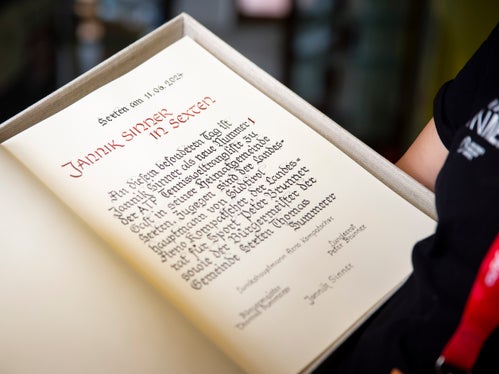 Sexten am 11.06.2024
JANNIK SINNER
IN SEXTEN
An diesem besonderen Tag ist
Jannik Sinner als neue Nummer 1
der ATP Tennisweltrangliste zu
Gast in seiner Heimatgemeinde
Sexten. Zugegen sind der Landes-
hauptmann von Südtirol
Arno Kompatscher, der Landes-
rat für Sport Peter Brunner
sowie der Bürgermeister der
Gemeinde Sexten Thomas
Summerer
Landeshauptmann Arno Kompatscher
Bürgermeister
Thomas Summerer
Landesrat
Peter Brunner
Jannik Sinner